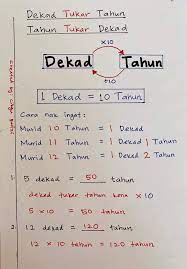 Dekad Tukar Tahun
Tahun Tukar Dekad
x10
Dekad Tahun
÷10
1 Dekad = 10 Tahun
Cara nak ingat:
Murid 10 Tahun = 1 Dekad
Murid 11 Tahun = 1 Dekad 1 Tahun
Murid 12 Tahun = 1 Dekad 2 Tahun
1. 5 dekad = 50 tahun
dekad tukar tahun kena x10
5 x 10 = 50 tahun
2. 12 dekad = 120 tahun
12 x 10 = 120 tahun